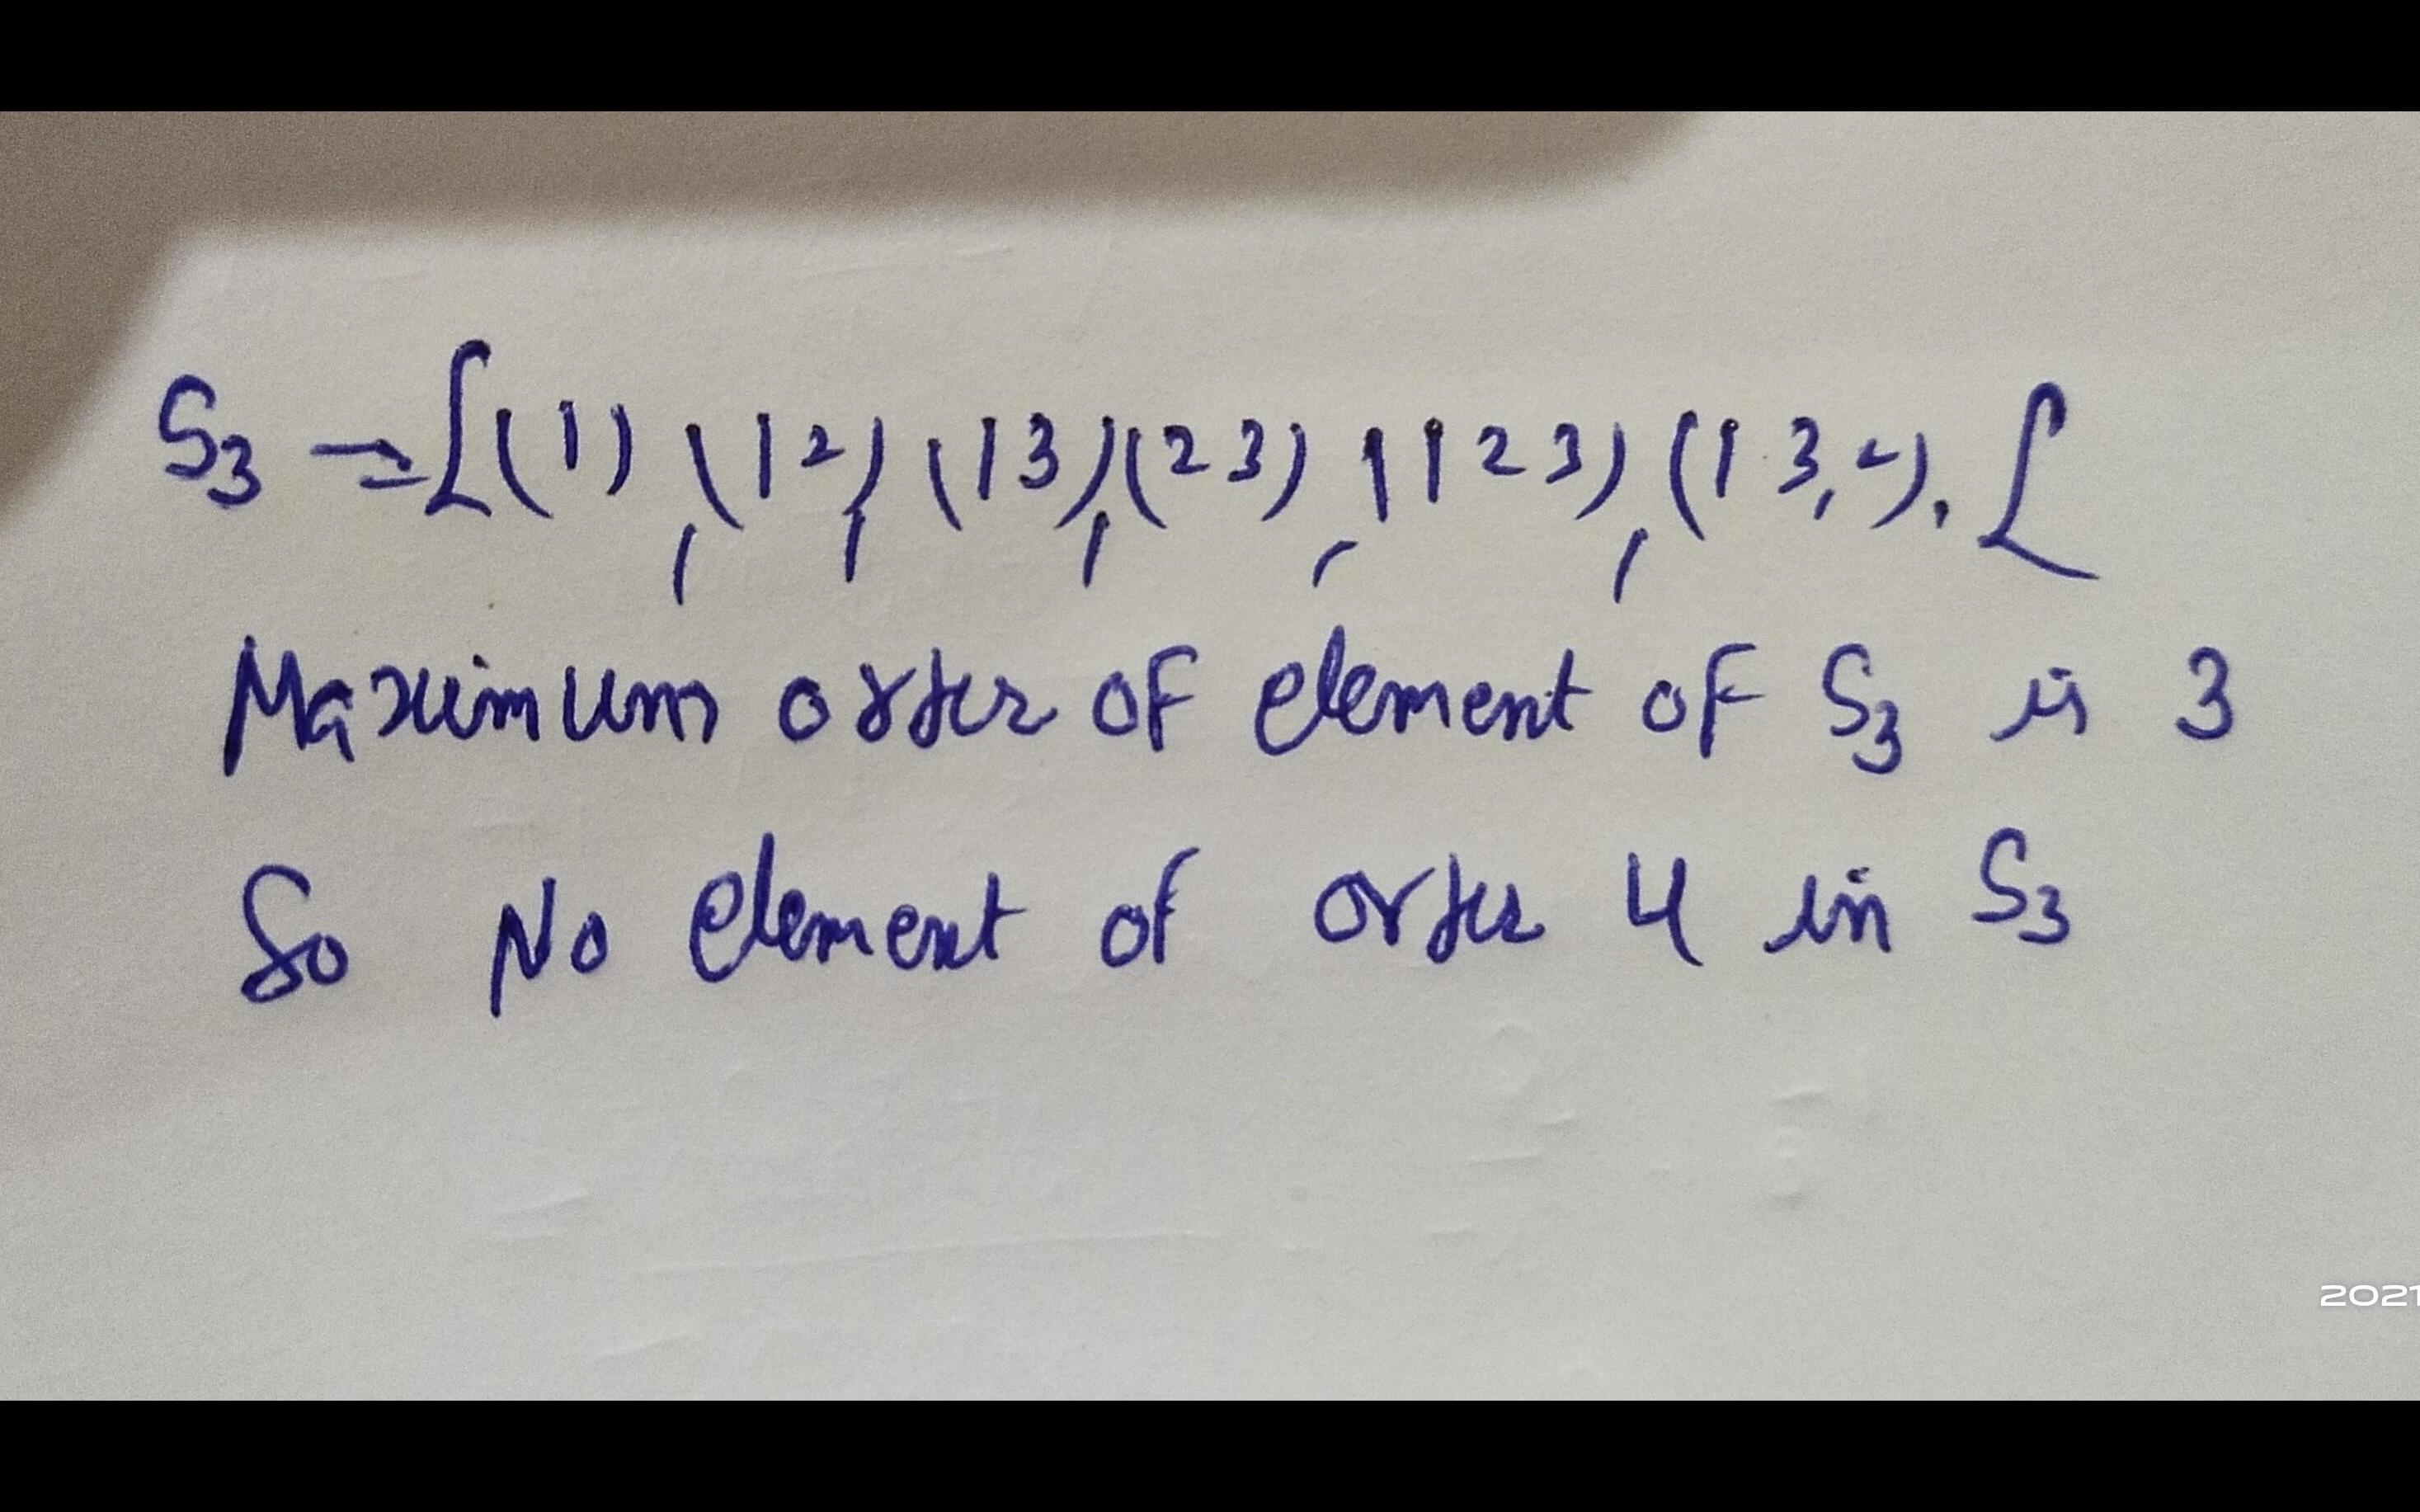 S3 = {(1), (12), (13), (23), (123), (13,2). {
Maximum order of element of S3 is 3
So No element of order 4 in S3
2021